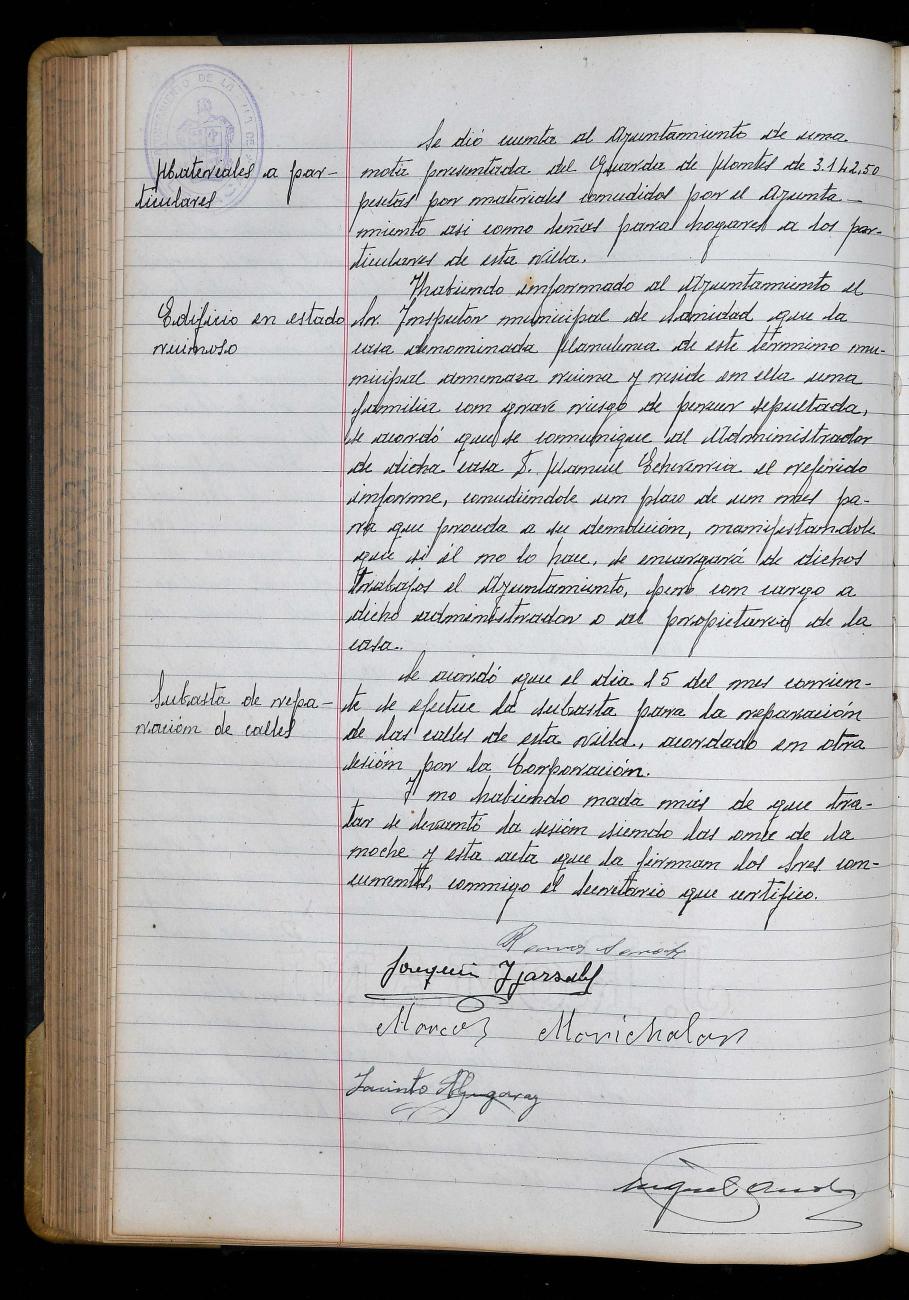 AYUNTAMIENTO DE LA
Se dió cuenta al Ayuntamiento de una
Materiales a par-
nota presentada del Guarda de montes de 3.142,50
ticulares
pesetas por materiales concedidos por el Ayunta-
miento asi como leñas para hogares a los par-
ticulares de esta villa.
Habiendo informado al Ayuntamiento el
Edificio en estado
Sr. Inspector municipal de Sanidad que la
ruinoso
casa denominada de este término mu-
nicipal amenaza ruina y reside en ella una
familia con grave riesgo de perecer sepultada,
se acordó que se comunique al Administrador
de dicha casa D. Manuel Echeverria el referido
informe, concediéndole un plazo de un mes pa-
ra que proceda a su demolición, manifestandole
que si él no lo hace, se encargará de dichos
trabajos el Ayuntamiento, pero con cargo a
dicho administrador o al propietario de la
casa.
Se acordó que el dia 15 del mes corrien-
Subasta de repa-
te se efectue la subasta para la reparación
ración de calles
de las calles de esta villa, acordado en otra
sesión por la Corporación.
Y no habiendo nada más de que tra-
tar se levantó la sesión siendo las once de la
noche y esta acta que la firman los Sres. con-
currentes, conmigo el Secretario que certifico.
Joaquin Ygarzabl
Marcos Marichalar
Jacinto
Miguel